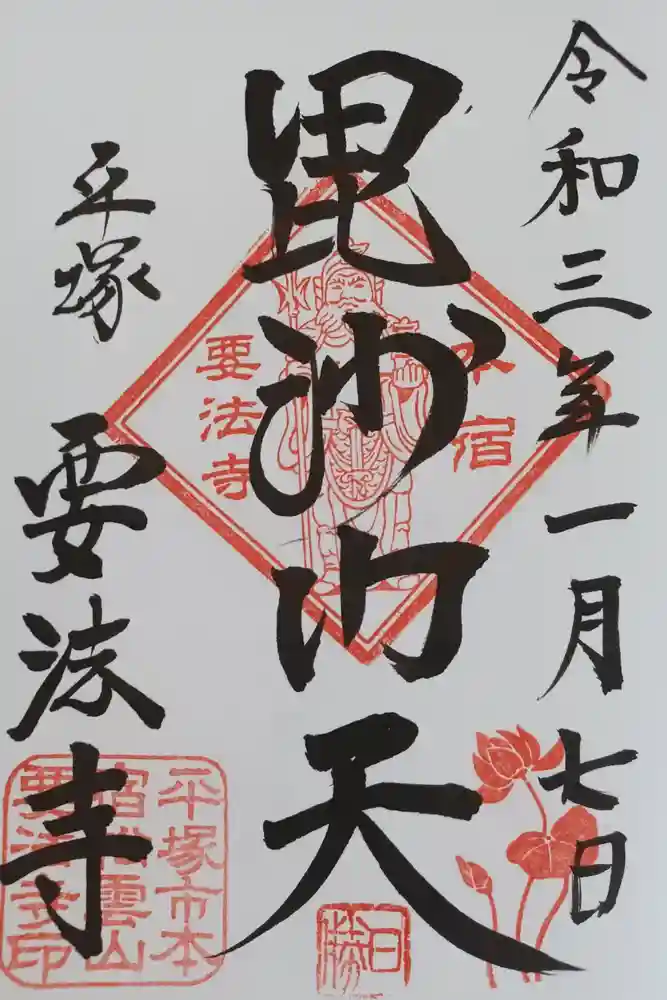 令和三年一月七日
毘沙門天
本宿
要法寺
平塚
要法寺
平塚市本
宿松雲山
要法寺印